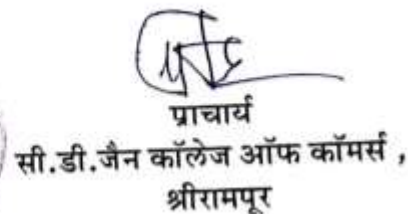 प्राचार्य
सी.डी.जैन कॉलेज ऑफ कॉमर्स ,
श्रीरामपूर